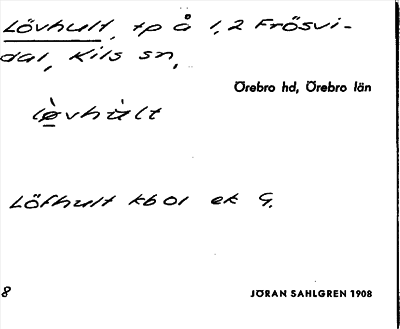 Lövhult, tp å 1,2 Frösvi-
dal, Kils sn,
Örebro hd, Örebro län
lø̀vhùlt
Löfhult kb 01 ek G.
8
JÖRAN SAHLGREN 1908